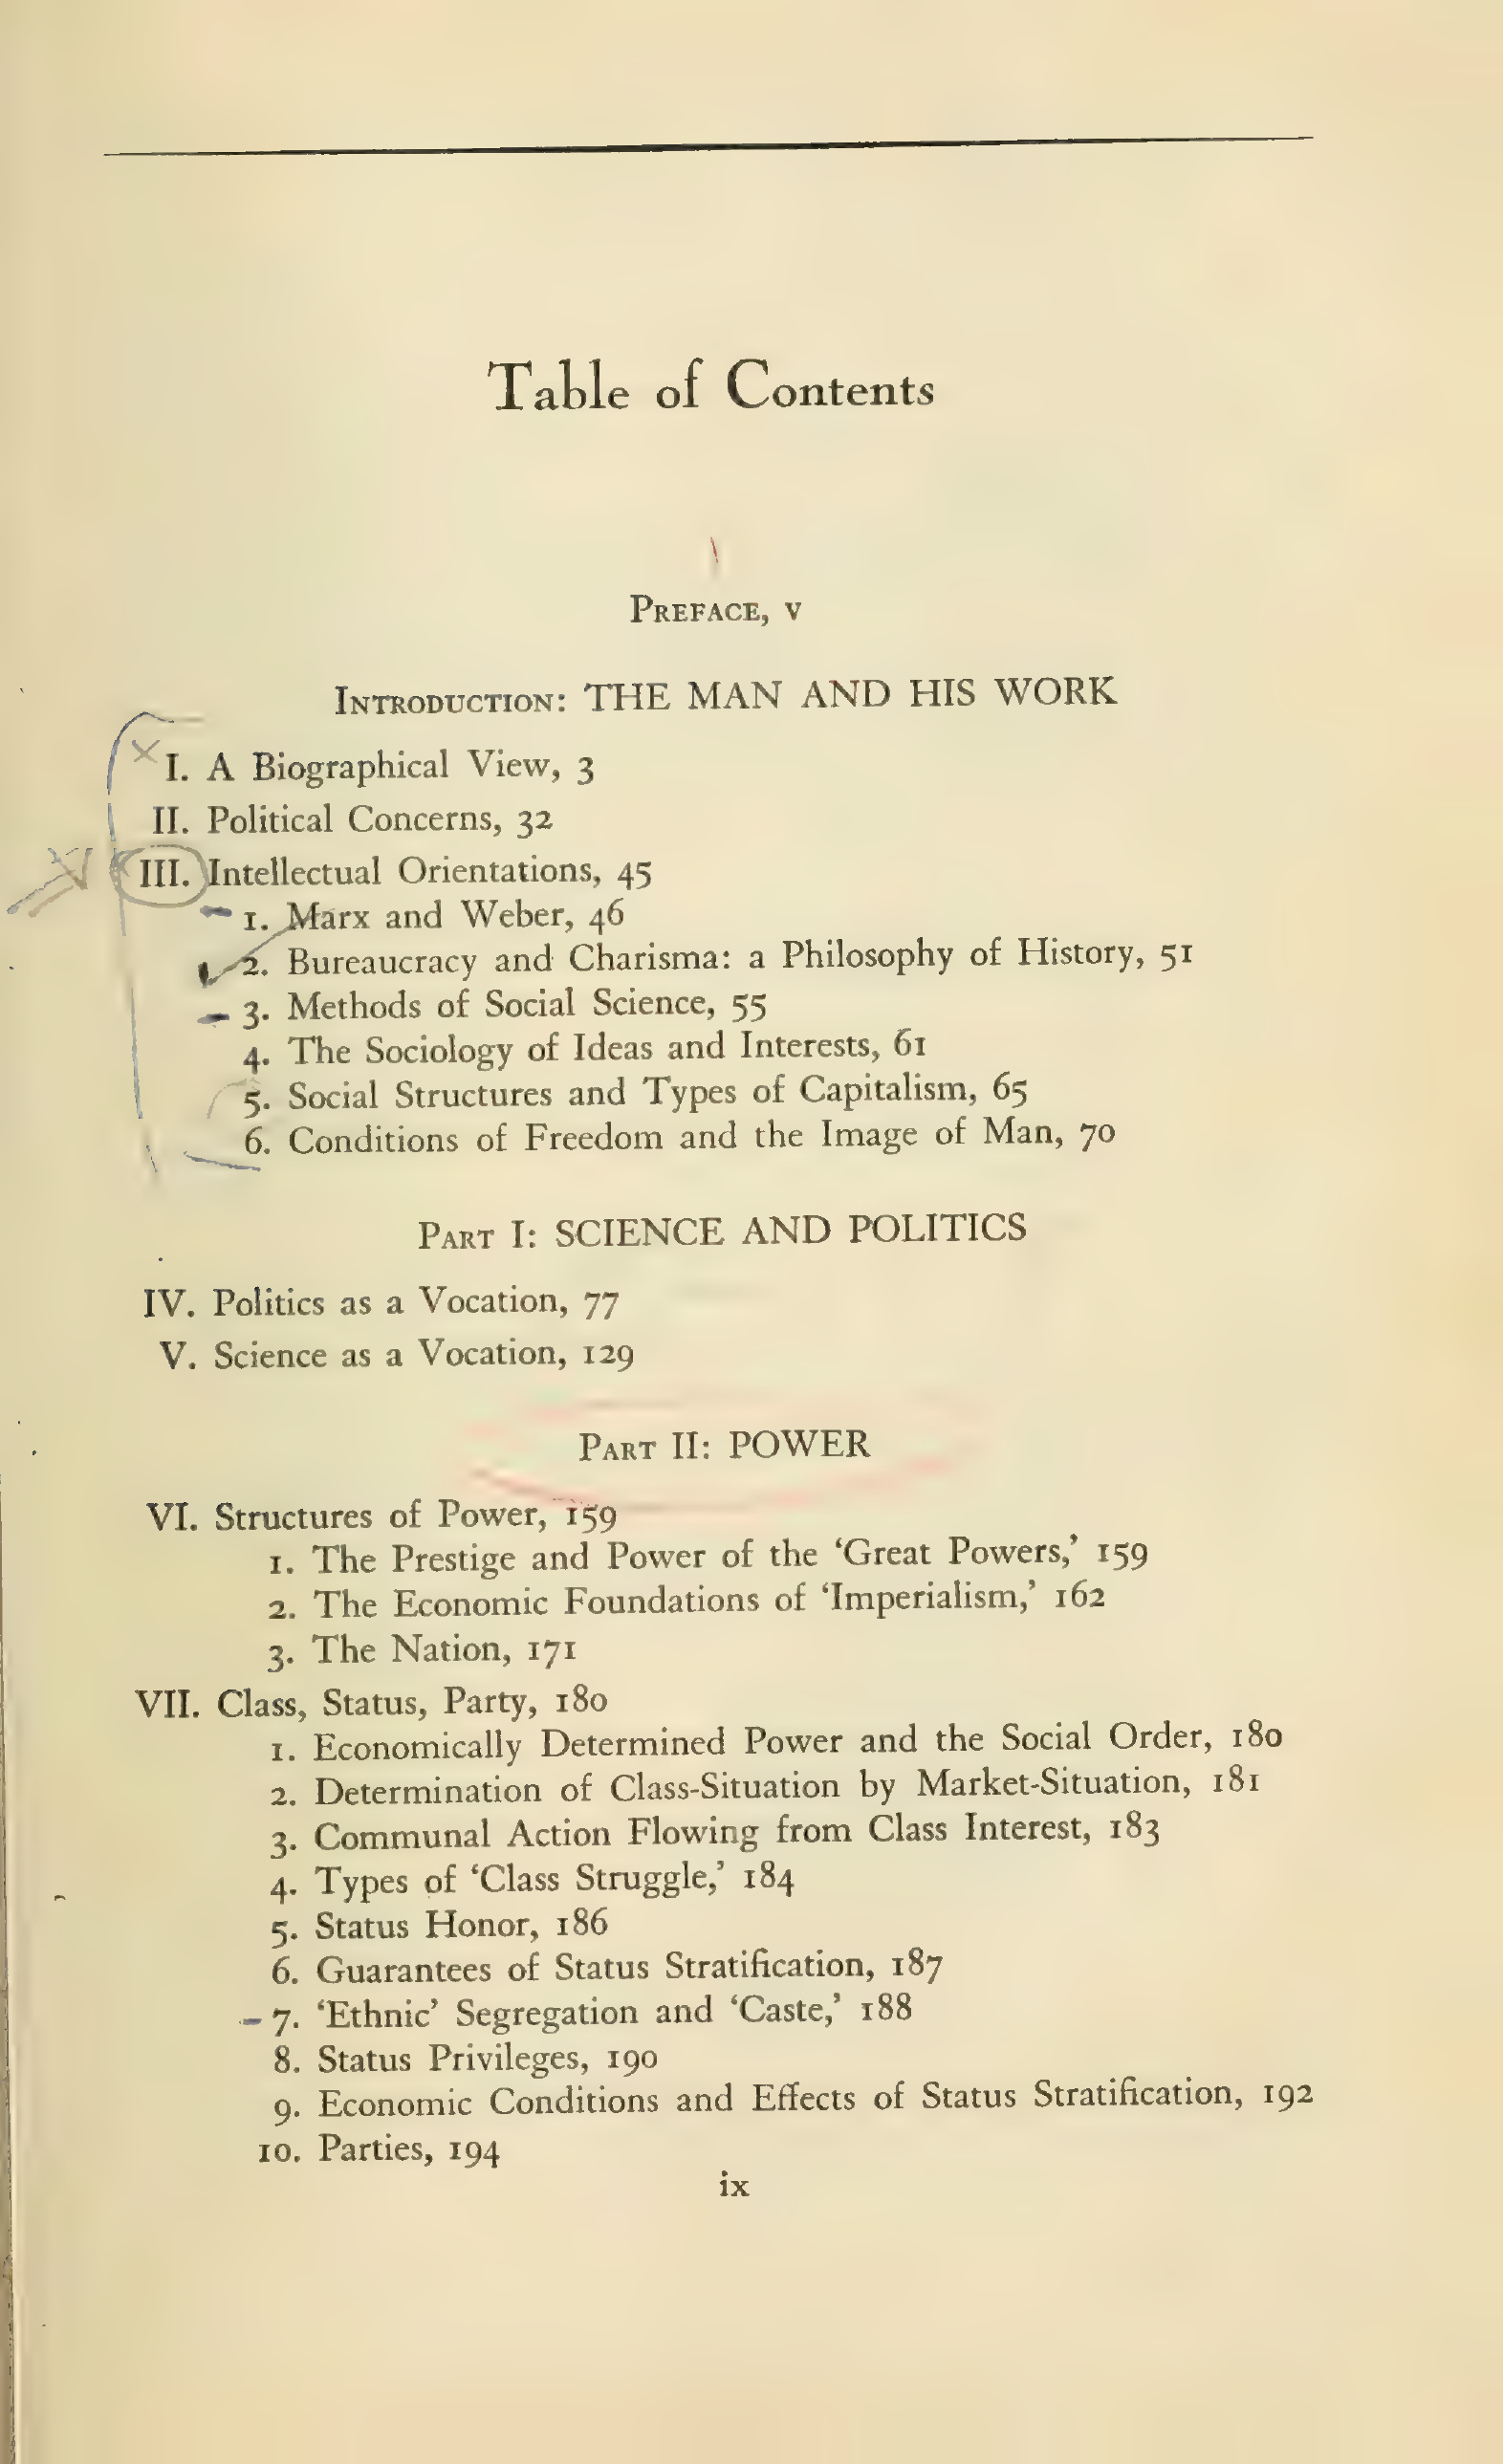 Table of Contents
Preface, v
Introduction: THE MAN AND HIS WORK
I. A Biographical View, 3
II. Political Concerns, 32
III. Intellectual Orientations, 45
1. Marx and Weber, 46
2. Bureaucracy and Charisma: a Philosophy of History, 51
3. Methods of Social Science, 55
4. The Sociology of Ideas and Interests, 61
5. Social Structures and Types of Capitalism, 65
6. Conditions of Freedom and the Image of Man, 70
Part I: SCIENCE AND POLITICS
IV. Politics as a Vocation, 77
V. Science as a Vocation, 129
Part II: POWER
VI. Structures of Power, 159
1. The Prestige and Power of the ‘Great Powers,’ 159
2. The Economic Foundations of ‘Imperialism,’ 162
3. The Nation, 171
VII. Class, Status, Party, 180
1. Economically Determined Power and the Social Order, 180
2. Determination of Class-Situation by Market-Situation, 181
3. Communal Action Flowing from Class Interest, 183
4. Types of ‘Class Struggle,’ 184
5. Status Honor, 186
6. Guarantees of Status Stratification, 187
7. ‘Ethnic’ Segregation and ‘Caste,’ 188
8. Status Privileges, 190
9. Economic Conditions and Effects of Status Stratification, 192
10. Parties, 194
ix